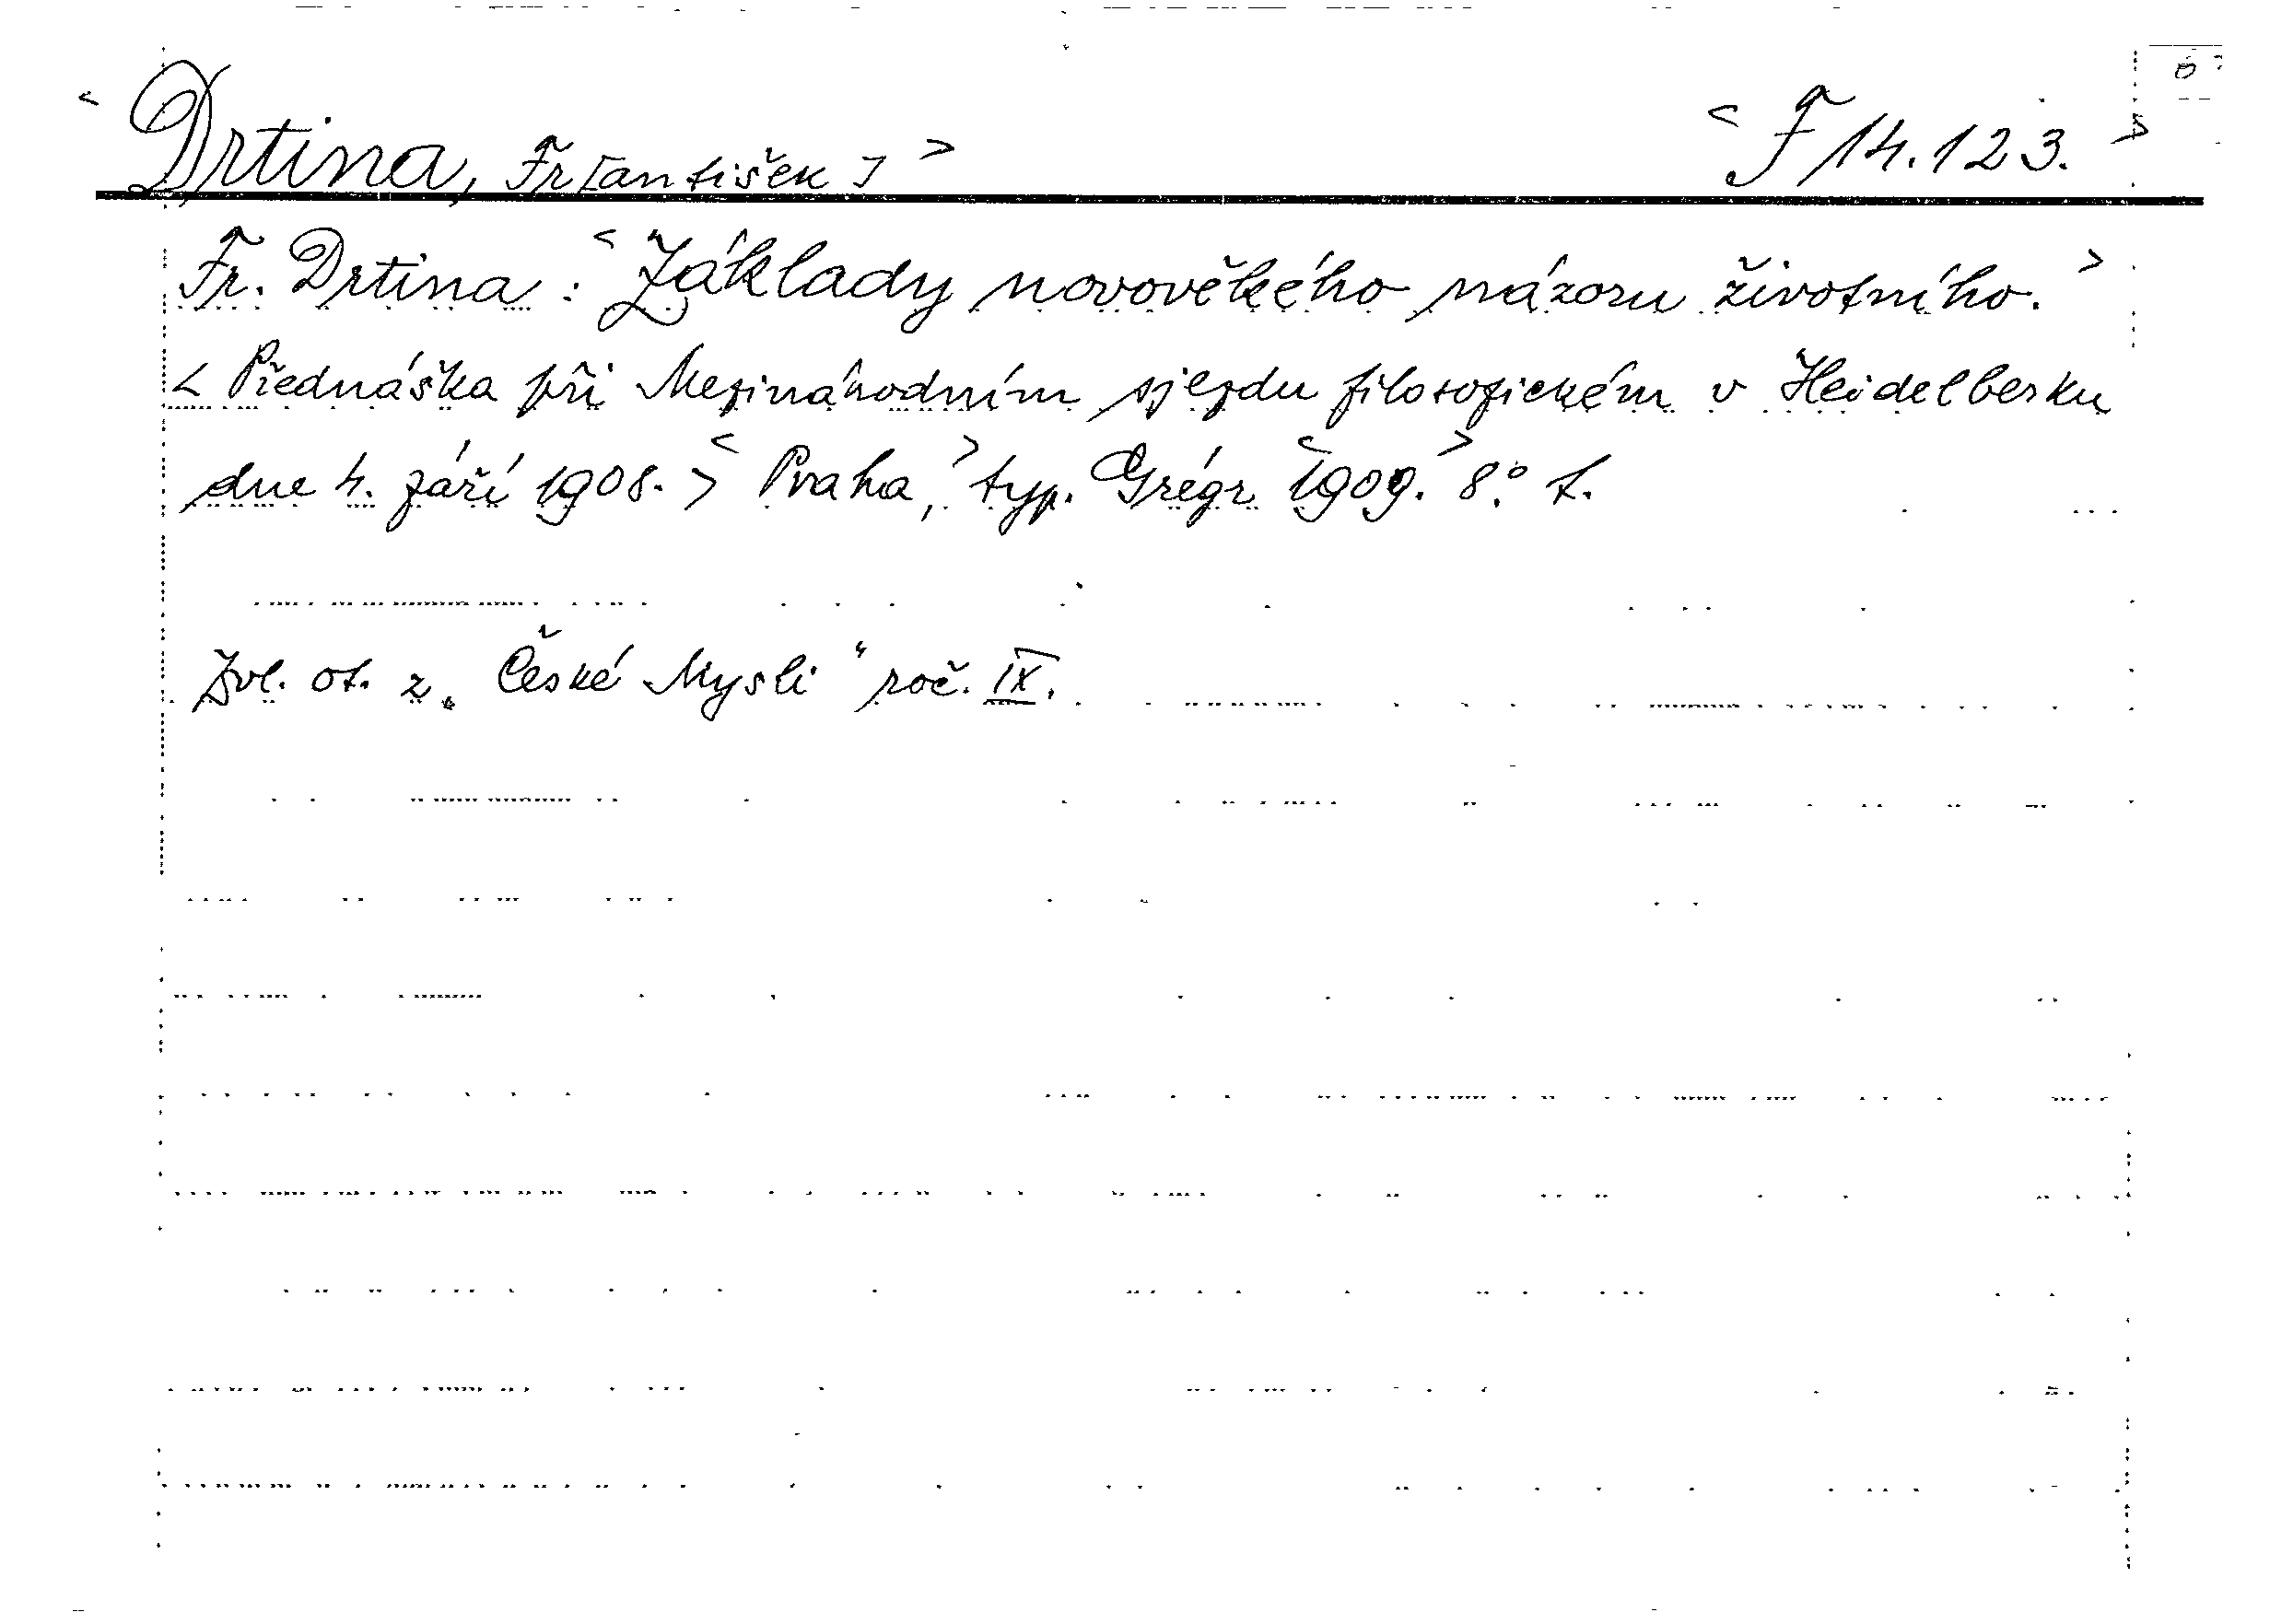 < Drtina, Fr[antišek] > < F 14.123. >
Fr. Drtina: < Základy novověkého názoru životního. >
< Přednáška při Mezinárodním sjezdu filosofickém v Heidelberku
dne 4. září 1908. > < Praha, > typ. Grégr < 1909. > 8.°
Zvl. ot. z „České Mysli“ roč. IX.